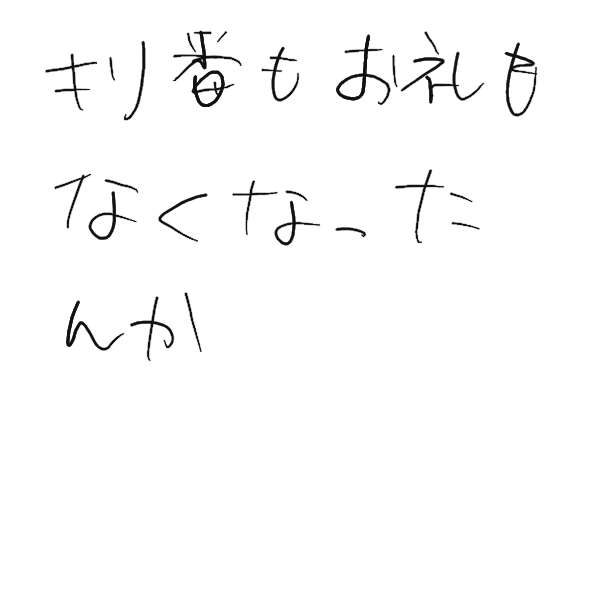 キリ番もお礼も
なくなった
んか